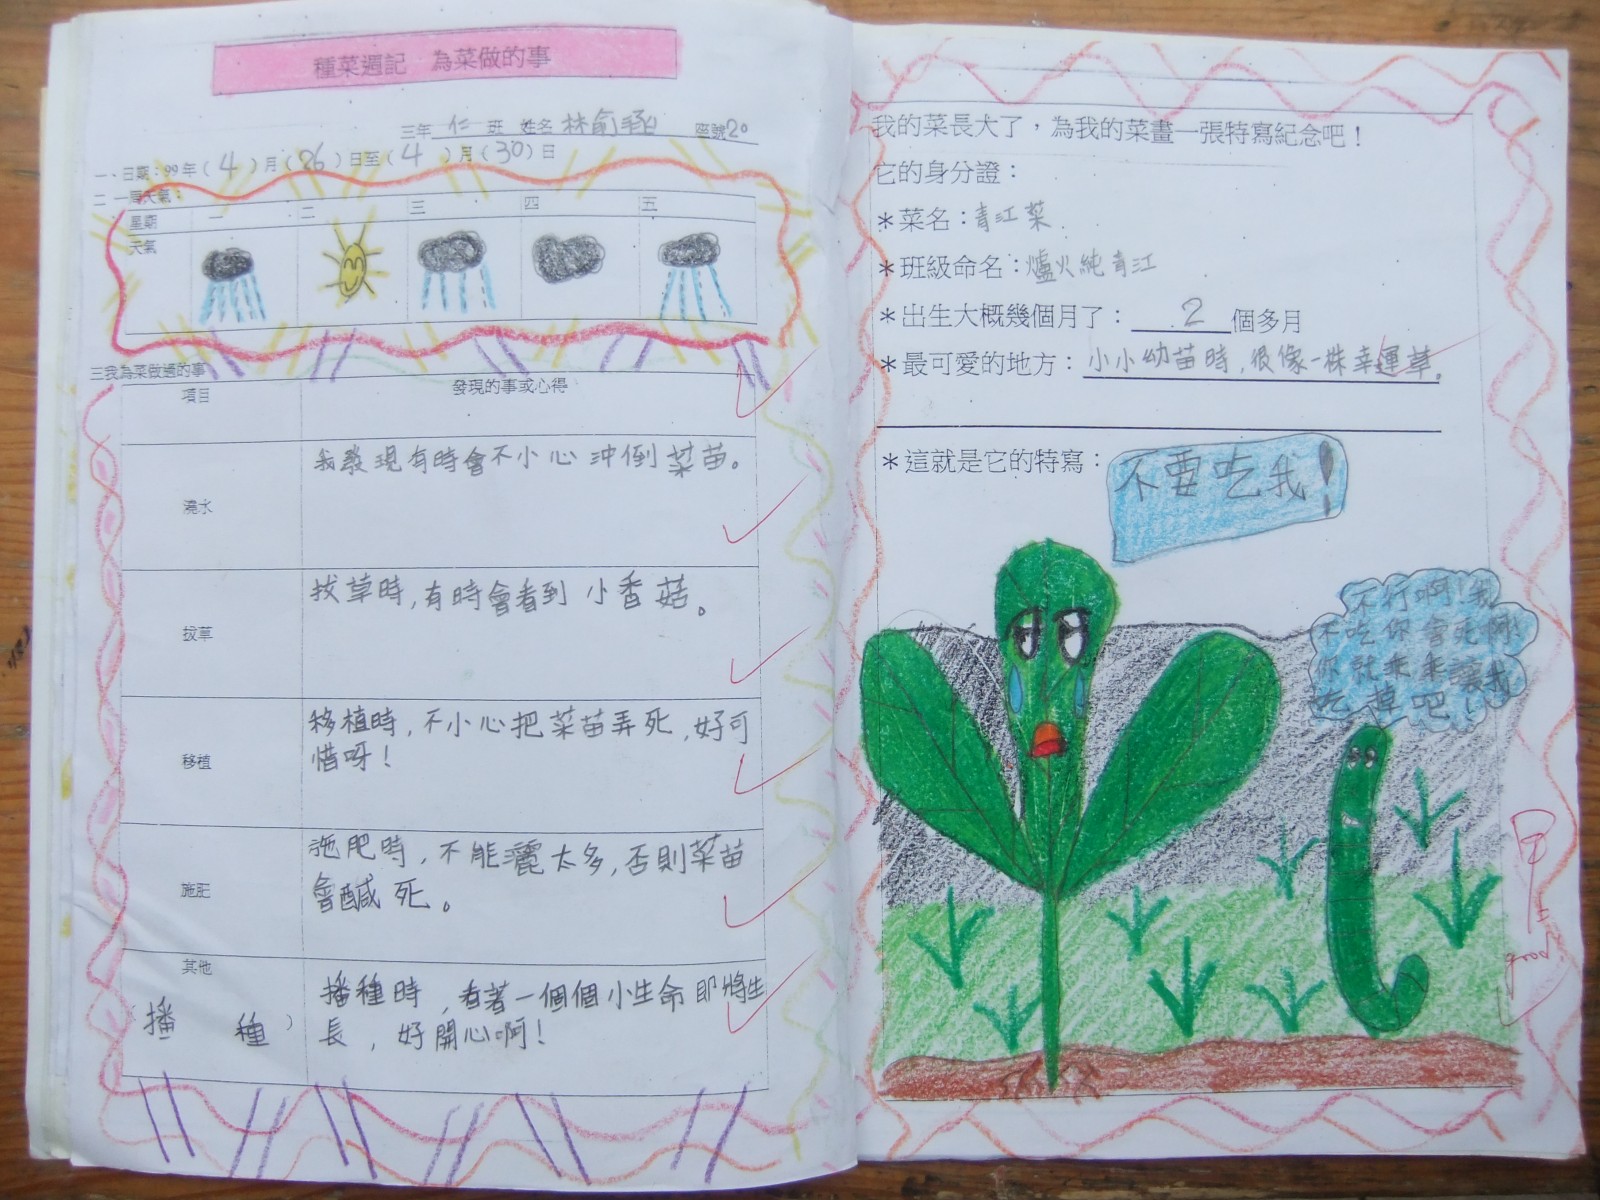 種菜週記　為菜做的事
三年 仁 班 姓名 林俞 座號20
一、日期：99年(4)月(26)日至(4)月(30)日
二 一周天氣：
星期 一 二 三 四 五
天氣
三我為菜做過的事
項目 發現的事或心得
澆水 我發現有時會不小心沖倒菜苗。
拔草 拔草時,有時會看到小香菇。
移植時,不小心把菜苗弄死,好可
移植 惜呀!
施肥時,不能灑太多,否則菜苗
施肥 會鹹死。
其他
播種時,看著一個個小生命即將生
播種 長,好開心啊!
我的菜長大了，為我的菜畫一張特寫紀念吧！
它的身分證：
＊菜名：青江菜
＊班級命名：爐火純青江
＊出生大概幾個月了：2個多月
＊最可愛的地方：小小幼苗時,很像一株幸運草。
＊這就是它的特寫：
不要吃我!
不行啊!我
不吃你會死啊!
你就乖乖讓我
吃掉吧!
甲上
good